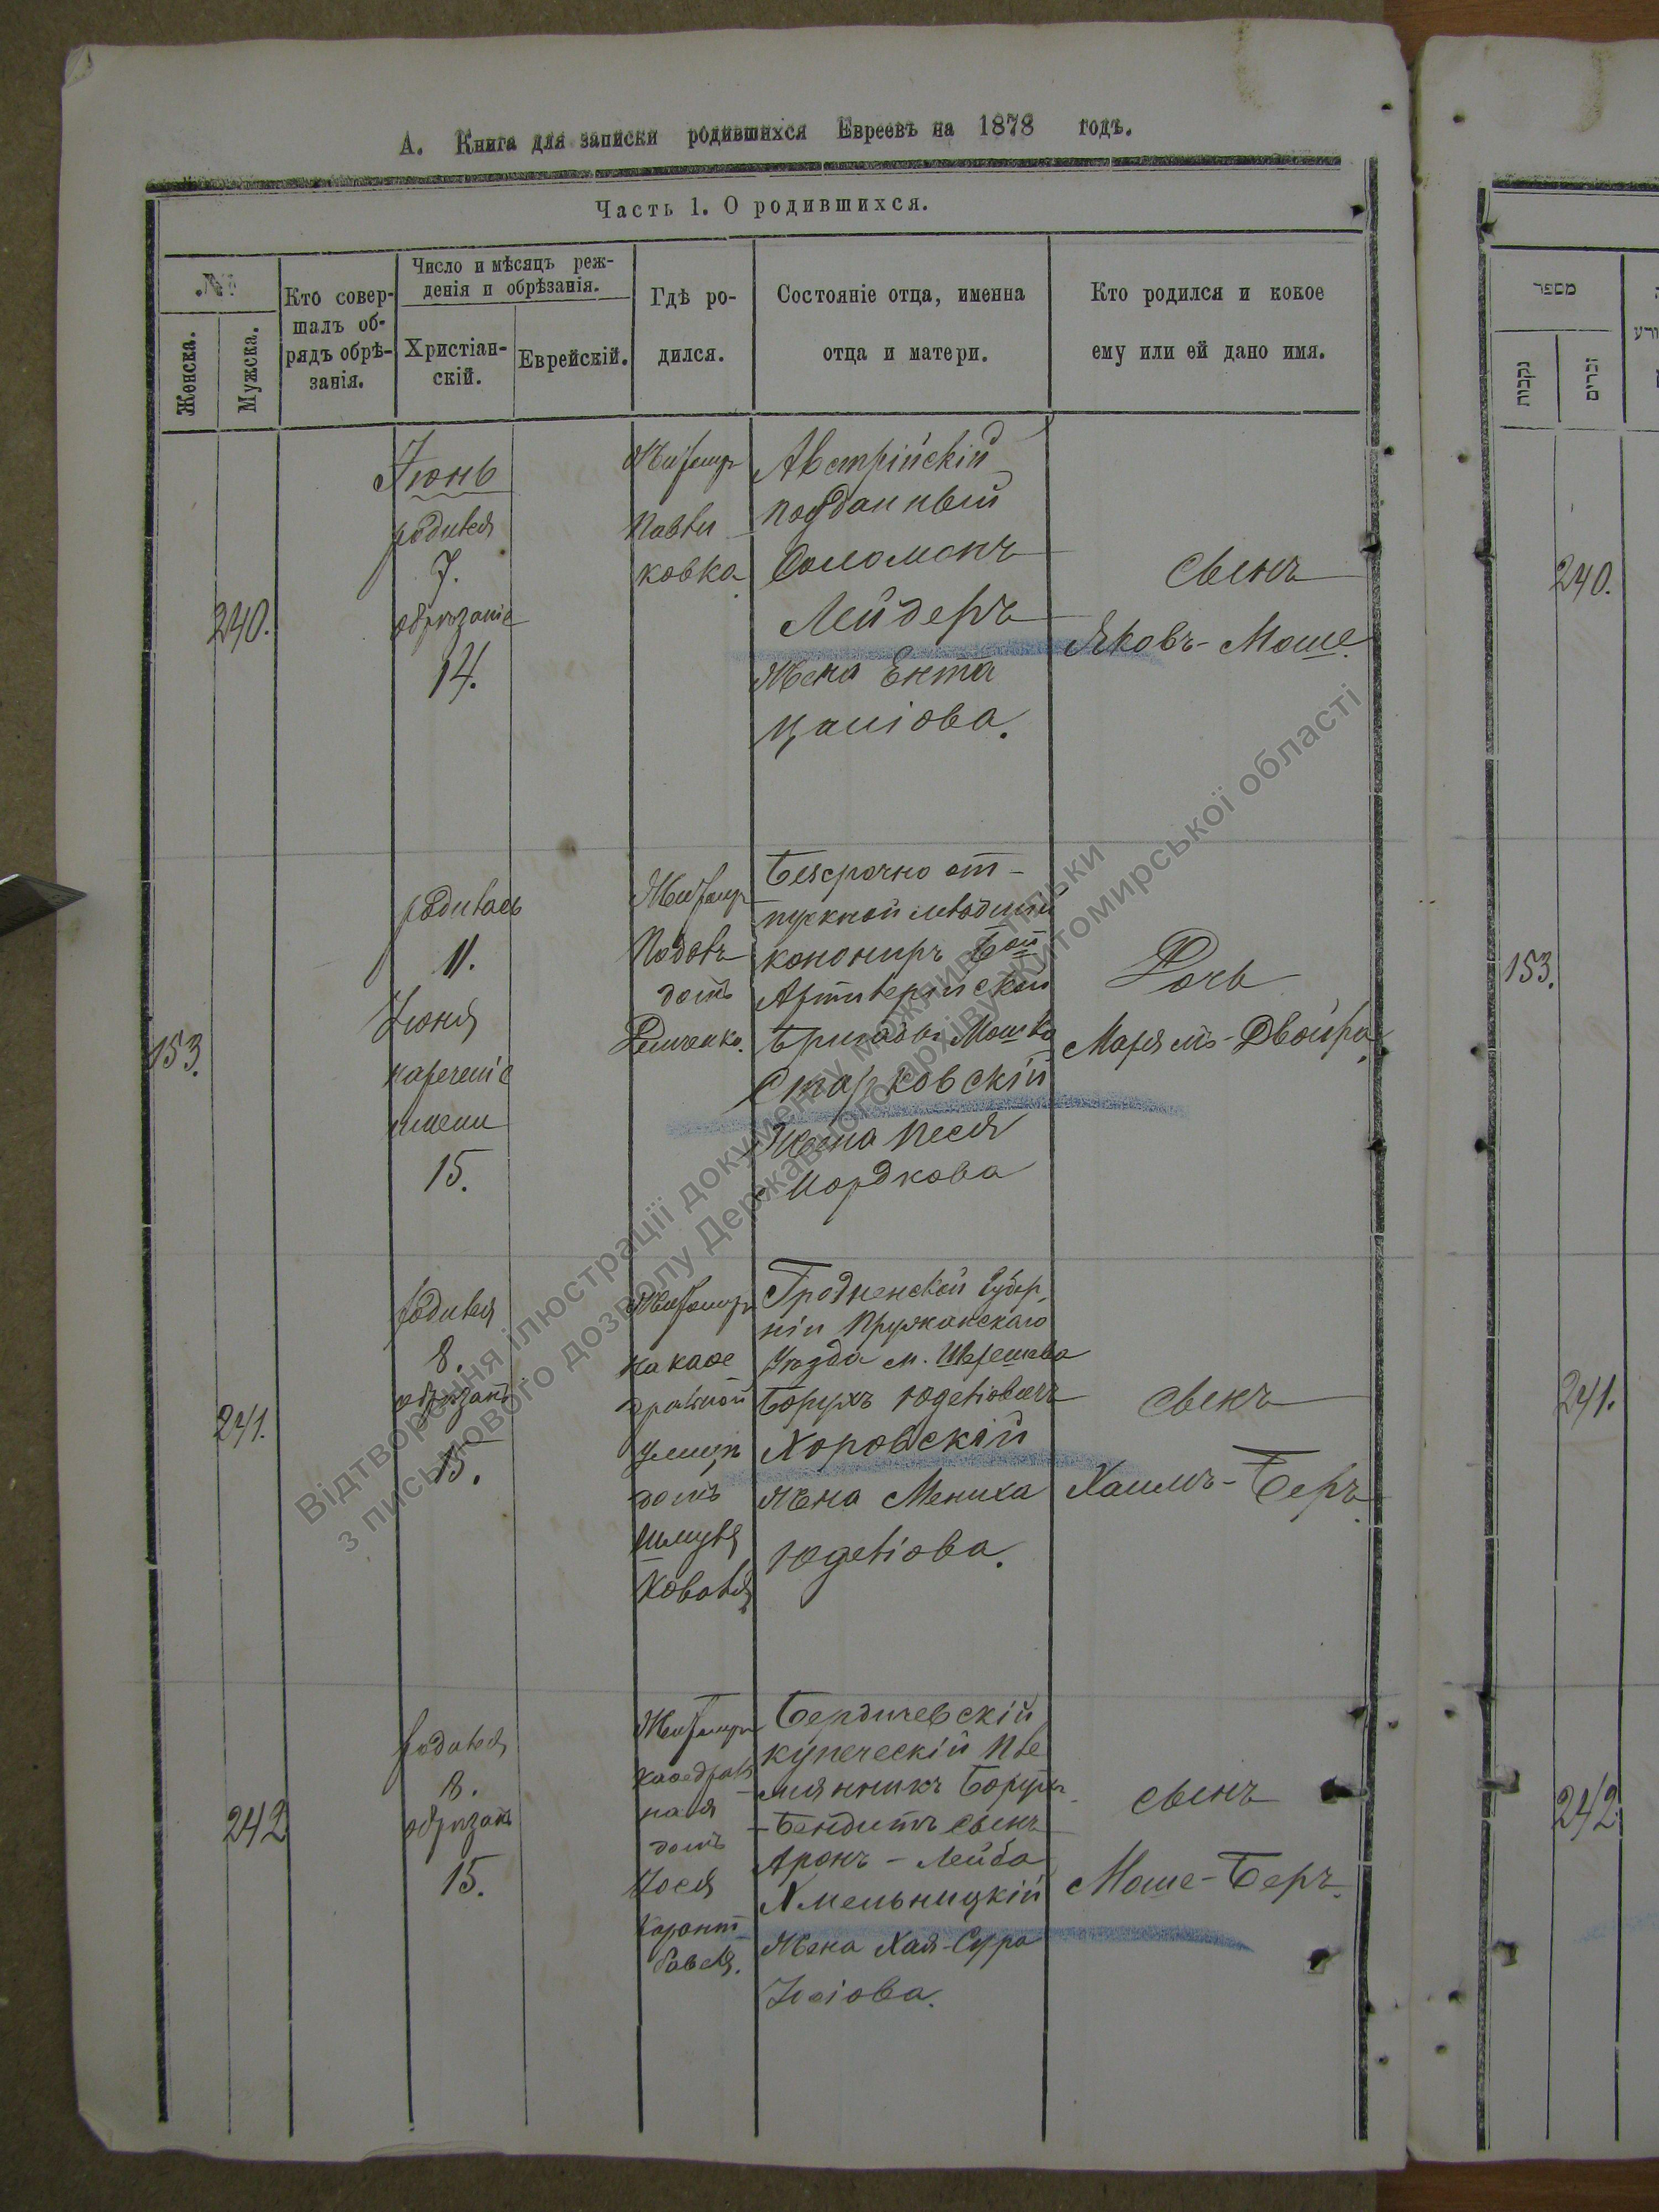 А. Книга для записки родившихся Евреевъ на 1878 годъ.
Часть 1. О родившихся.
№
Женска.
Мужска.
Кто совер-
шалъ об-
рядъ обрѣ-
занія.
Число и мѣсяцъ реж-
денія и обрѣзанія.
Христіан-
скій.
Еврейскій.
Гдѣ ро-
дился.
Состояніе отца, именна
отца и матери.
Кто родился и кокое
ему или ей дано имя.
240.
Іюнь
родился
7.
обрѣзаніе
14.
Житомир
Павли
ковка
Австрійскій
подданный
Соломонъ
Лейдеръ
Жена Ента
сынъ
Яковъ-Моше.
153.
родилась
11.
Іюня
нареченіе
имени
15.
Житомир
домъ
Безсрочно от-
пускной
Артилерійской
бригады Мошко
Старковскій
Жена Песя
Мордкова
Дочь
Марямъ-Двойра
241.
родился
8.
обрѣзанъ
15.
Житомиръ
на кафе
дральной
улицѣ
домъ
Шмуля
Коваля
Гродненской Губер
ніи Пружанскаго
Уѣзда м. Шерешева
Борухъ Юделіовичъ
Хоровскій
жена Мениха
Юделіова.
сынъ
Хаимъ-Беръ.
242
родился
8.
обрѣзанъ
15.
Житомиръ
кафедраль
ная
домъ
Іося
Бердичевскій
купеческій пле
мянникъ Борухъ
-Бендитъ сынъ
Аронъ-Лейба
Хмельницкій
Жена Хая-Сура
сынъ
Моше-Беръ.
מספר
נקבות
זכרים
240.
153.
241.
242
Відтворення ілюстрації документу можливе тільки
з письмового дозволу Державного архіву Житомирської області